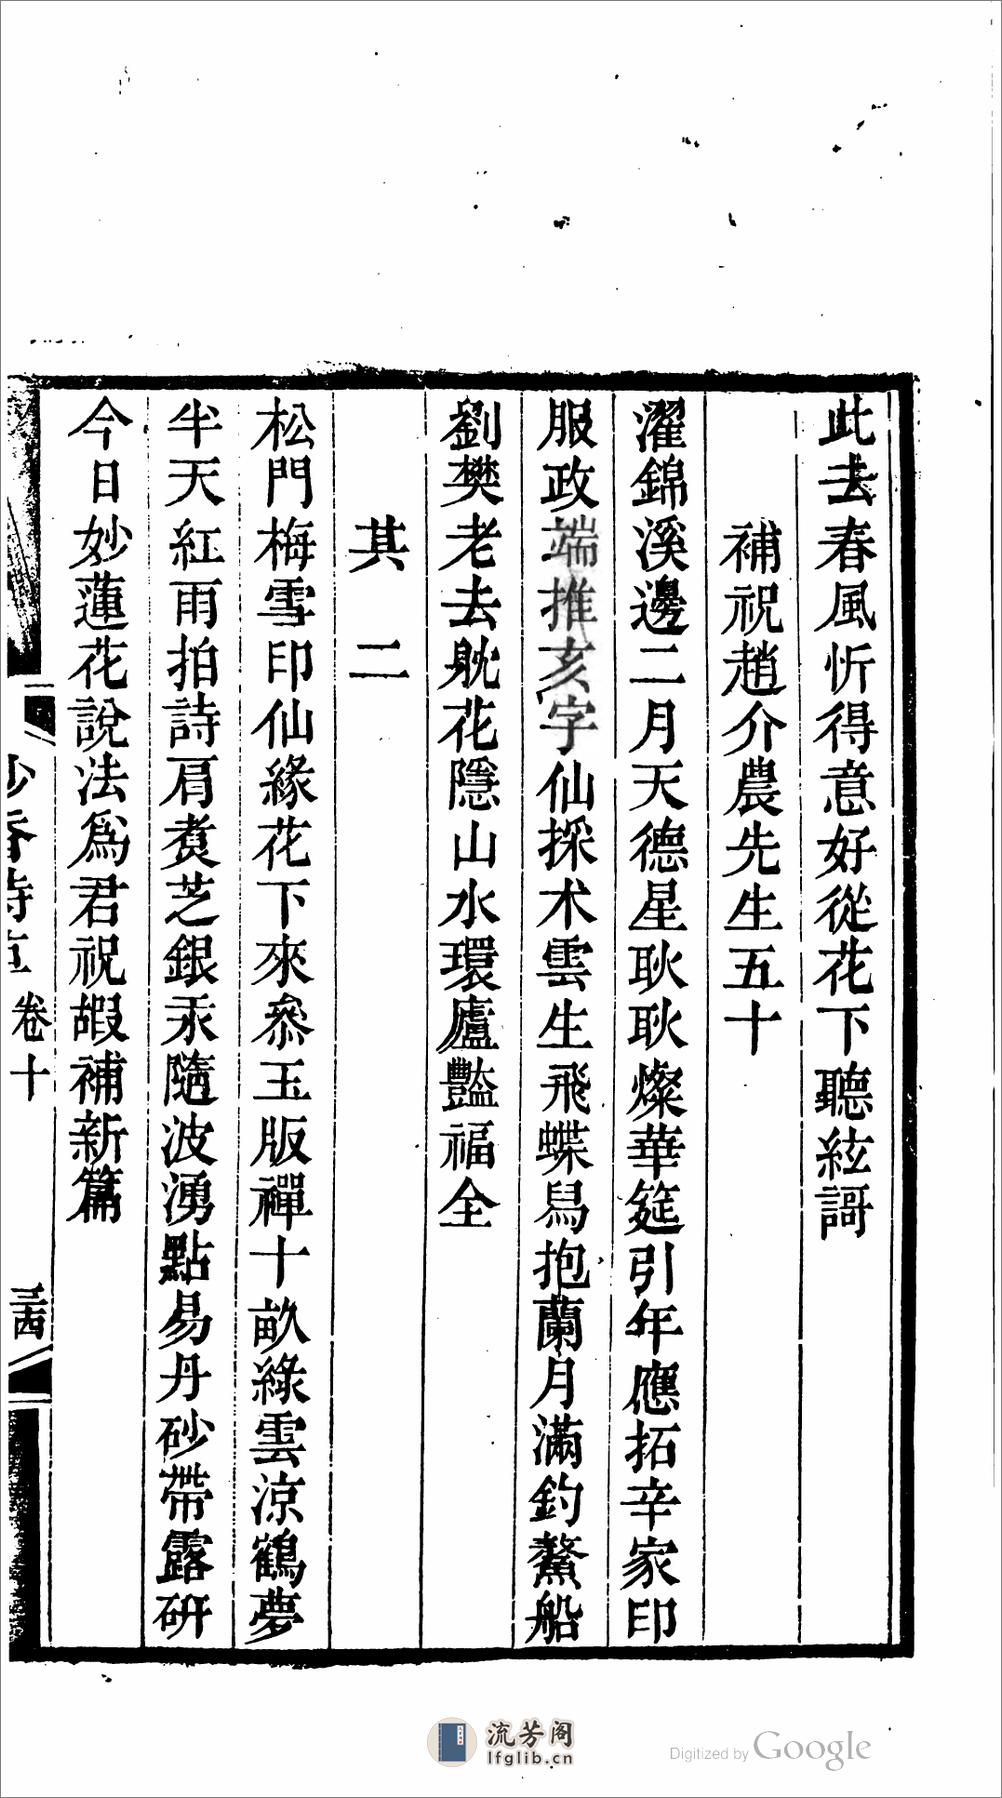 此去春風忻得意好從花下聽絃謌
補祝趙介農先生五十
濯錦溪邊二月天德星耿耿燦華筵引年應拓辛家印
服政端推亥字仙採朮雲生飛蝶舄抱蘭月滿釣鰲船
劉樊老去躭花隱山水環廬豔福全
其二
松門梅雪印仙緣花下來參玉版禪十畝綠雲涼鶴夢
半天紅雨拍詩肩煑芝銀汞隨波湧點易丹砂帶露硏
今日妙蓮花說法爲君祝嘏補新篇
卷十
三四
流芳阁
lfglib.cn
Digitized by Google